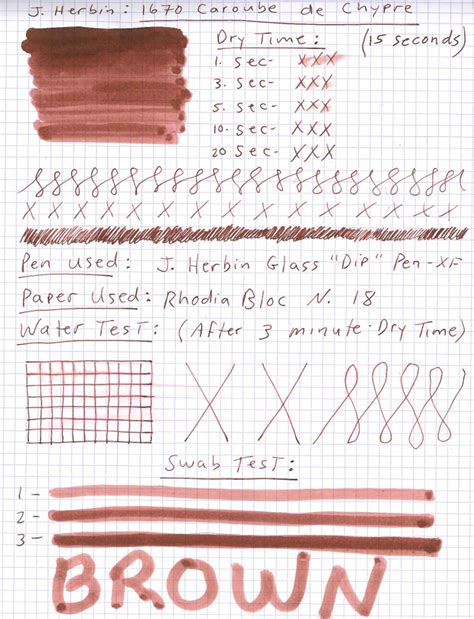 J. Herbin: 1670 Caroube de Chypre
Dry Time: (15 seconds)
1. Sec- XXX
3. Sec- XXX
5. Sec- XXX
10. Sec- XXX
20 Sec- XXX
X X X X X X X X X X X X X
Pen Used: J. Herbin Glass "Dip" Pen-XF
Paper Used: Rhodia Bloc N. 18
Water Test: (After 3 minute Dry Time)
X X
Swab Test:
1-
2-
3-
BROWN